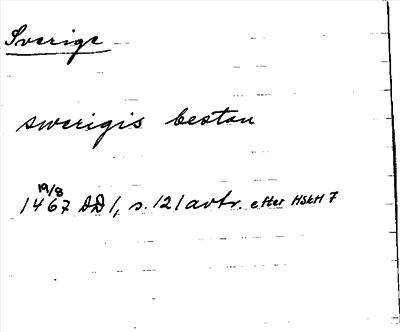 Sverige
swerigis bestan
19/8
1467 DD 1, s. 121 avtr. efter HSkH 7